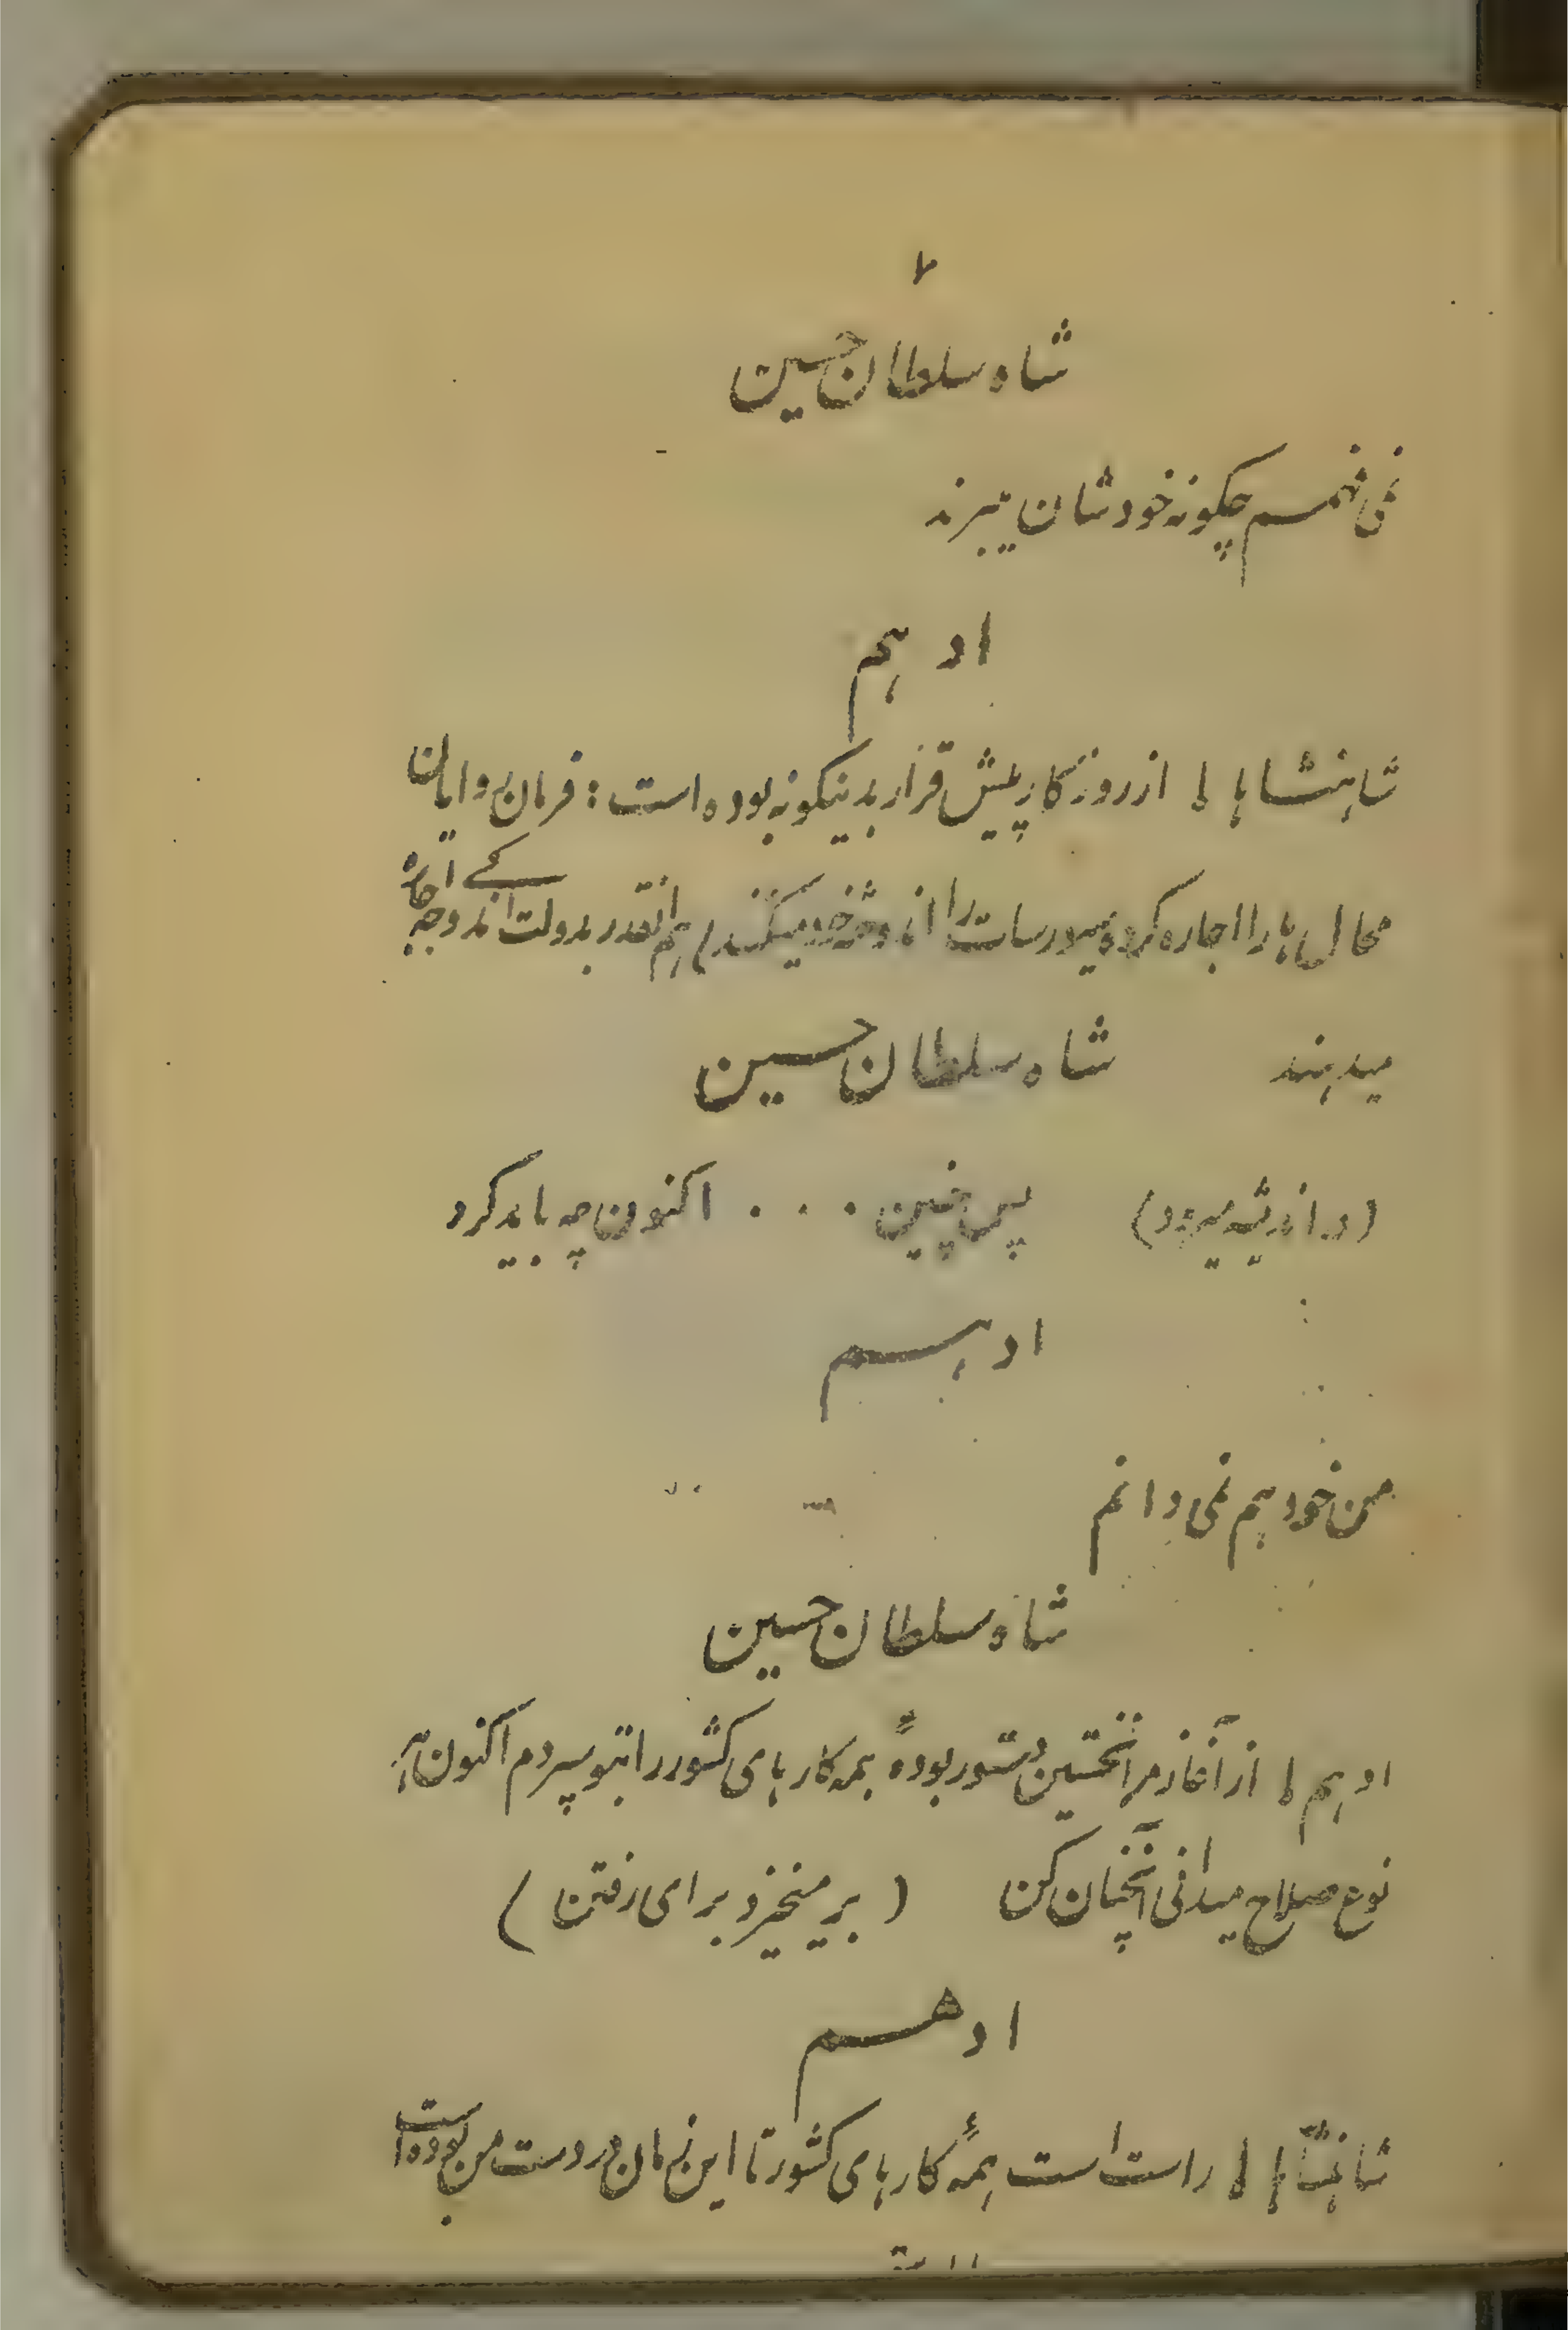 ۲
شاه سلطان حسین
نمی فهمم چگونه خودشان میبرند
ادهم
شاهنشاها ! از روزگار پیش قرار بدینگونه بوده است : فرمان روایان
محال ها را اجاره کرده را خود میکنند هم آنقدر بدولت اندکی وجه اجاره
میدهند شاه سلطان حسین
(در اندیشه میرود) پس چنین . . . اکنون چه باید کرد
ادهم
من خود هم نمی دانم
شاه سلطان حسین
ادهم ! از آغاز مرا نخستین دستور بودهٔ همه کارهای کشور را بتو سپردم اکنون هر
نوع صلاح میدانی آنچنان کن ( برمیخیزد برای رفتن )
ادهم
شاهنشاها ! راست است همهٔ کارهای کشور تا این زمان در دست من بوده است